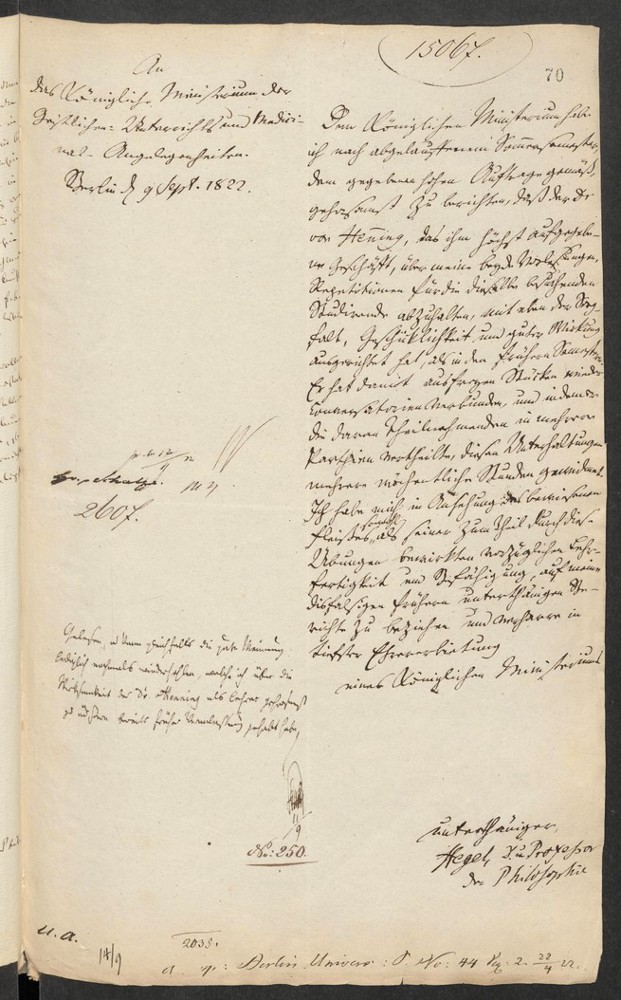 15067.
70
An
das Königliche Ministerium der
Geistlichen- Unterrichts und Medici-
nal- Angelegenheiten.
Berlin d 9 Sept. 1822.
Dem Königlichen Ministerium habe
ich nach abgelauffenem Sommersemester,
dem gegebenen hohen Auftrage gemäß,
gehorsamst zu berichten, daß der Dr
von Henning, das ihm höchst aufgegebe-
ne Geschäfft, über meine beyde Vorlesungen,
Repetitionen für die dieselbe besuchenden
Studirende abzuhalten, mit eben der Sorg-
falt, Geschicklichkeit und guter Wirkung
ausgerichtet hat, als in den frühern Semestern.
Er hat damit auf freyen Stücken wieder
Conversatorien verbunden, und indem er
die daran Theilnehmenden in mehrere
Parthien vertheilte, diesen Unterhaltungen
mehrere wöchentliche Stunden gewidmet.
Ich habe mich in Ansehung des bewiesenen
Fleißes sowohl, als seiner zum Theil durch diese
Übungen bewirkten vorzüglichen Lehr-
fertigkeit und Befähigung, auf meine
disfalsigen frühern unterthänigen Be-
richte zu beziehen und verharre in
tiefster Ehrerbietung
eines Königlichen Ministeriums
unterthäniger,
Hegel, Prof. u Professor
der Philosophie
2607.
Gelesen, u kann gleichfalls die gute Meinung
lediglich nochmals wiederholen, welche ich über die
Wirksamkeit des Dr. Henning als Lehrer gehorsamst
zu äußern bereits früher Veranlassung gehabt habe.
11/9
No: 250.
u. a.
14/9
2033.
Berlin Univers: No: 44 2. 22/4 22.